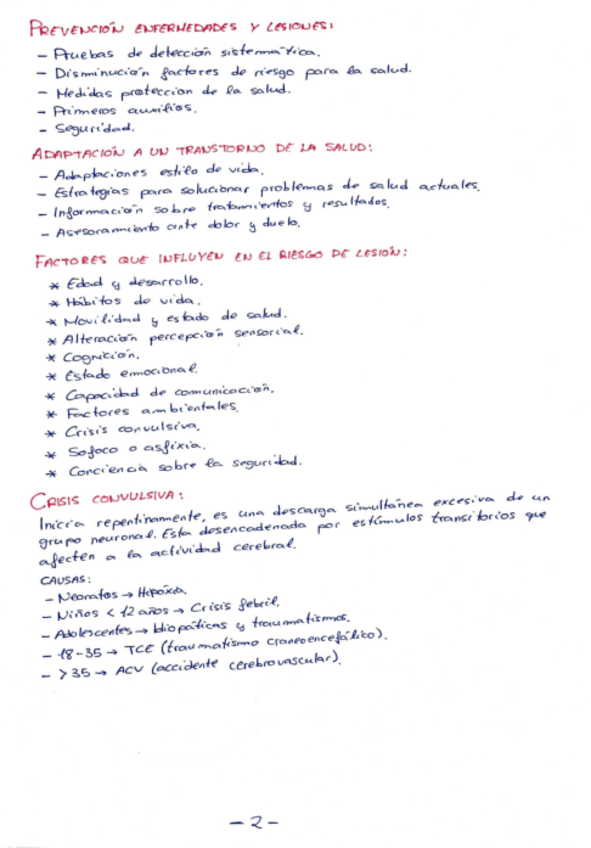 PREVENCIÓN ENFERMEDADES Y LESIONES:
- Pruebas de detección sistemática.
- Disminución factores de riesgo para la salud.
- Medidas protección de la salud.
- Primeros auxilios.
- Seguridad.
ADAPTACIÓN A UN TRANSTORNO DE LA SALUD:
- Adaptaciones estilo de vida.
- Estrategias para solucionar problemas de salud actuales.
- Información sobre tratamientos y resultados.
- Asesoramiento ante dolor y duelo.
FACTORES QUE INFLUYEN EN EL RIESGO DE LESIÓN:
* Edad y desarrollo.
* Hábitos de vida.
* Movilidad y estado de salud.
* Alteración percepción sensorial.
* Cognición.
* Estado emocional.
* Capacidad de comunicación.
* Factores ambientales.
* Crisis convulsiva.
* Sofoco o asfixia.
* Conciencia sobre la seguridad.
CRISIS CONVULSIVA:
Inicia repentinamente, es una descarga simultánea excesiva de un
grupo neuronal. Esta desencadenada por estímulos transitorios que
afecten a la actividad cerebral.
CAUSAS:
- Neonatos → Hipóxia.
- Niños < 12 años → Crisis febril.
- Adolescentes → Idiopáticas y traumatismos.
- 18-35 → TCE (traumatismo craneoencefálico).
- > 35 → ACV (accidente cerebrovascular).
- 2 -